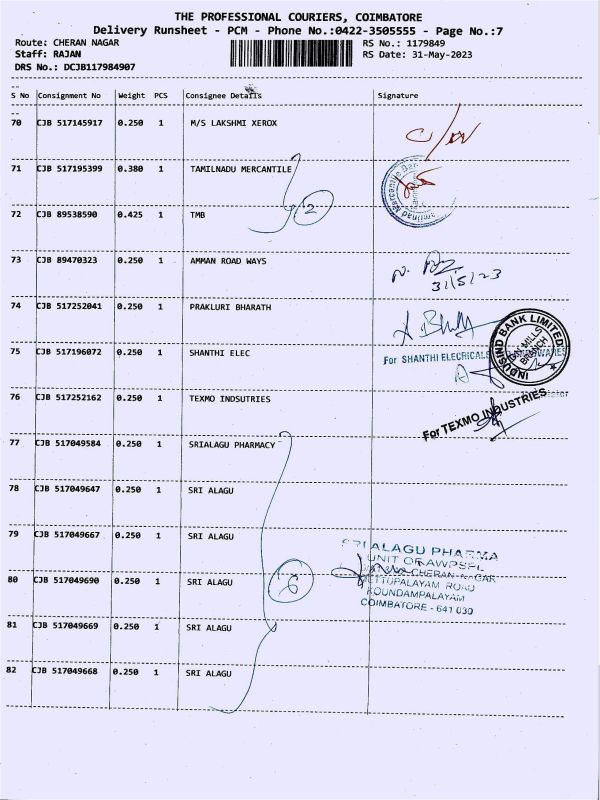 THE PROFESSIONAL COURIERS, COIMBATORE
Delivery Runsheet - PCM - Phone No.:0422-3505555 - Page No.:7
Route: CHERAN NAGAR RS No.: 1179849
Staff: RAJAN RS Date: 31-May-2023
DRS No.: DCJB117984907
S No Consignment No Weight PCS Consignee Details Signature
70 CJB 517145917 0.250 1 M/S LAKSHMI XEROX
71 CJB 517195399 0.380 1 TAMILNADU MERCANTILE
2
72 CJB 89538590 0.425 1 TMB
73 CJB 89470323 0.250 1 AMMAN ROAD WAYS
31/5/23
74 CJB 517252041 0.250 1 PRAKLURI BHARATH
INDUSIND BANK LIMITED
BRANCH
75 CJB 517196072 0.250 1 SHANTHI ELEC
For SHANTHI ELECRICALS
76 CJB 517252162 0.250 1 TEXMO INDSUTRIES
For TEXMO INDUSTRIES
77 CJB 517049584 0.250 1 SRIALAGU PHARMACY
78 CJB 517049647 0.250 1 SRI ALAGU
79 CJB 517049667 0.250 1 SRI ALAGU
SRI ALAGU PHARMA
UNIT OF AWPSPL
CHERAN NAGAR
METTUPALAYAM ROAD
KOUNDAMPALAYAM
COIMBATORE - 641 030
80 CJB 517049690 0.250 1 SRI ALAGU
6
81 CJB 517049669 0.250 1 SRI ALAGU
82 CJB 517049668 0.250 1 SRI ALAGU